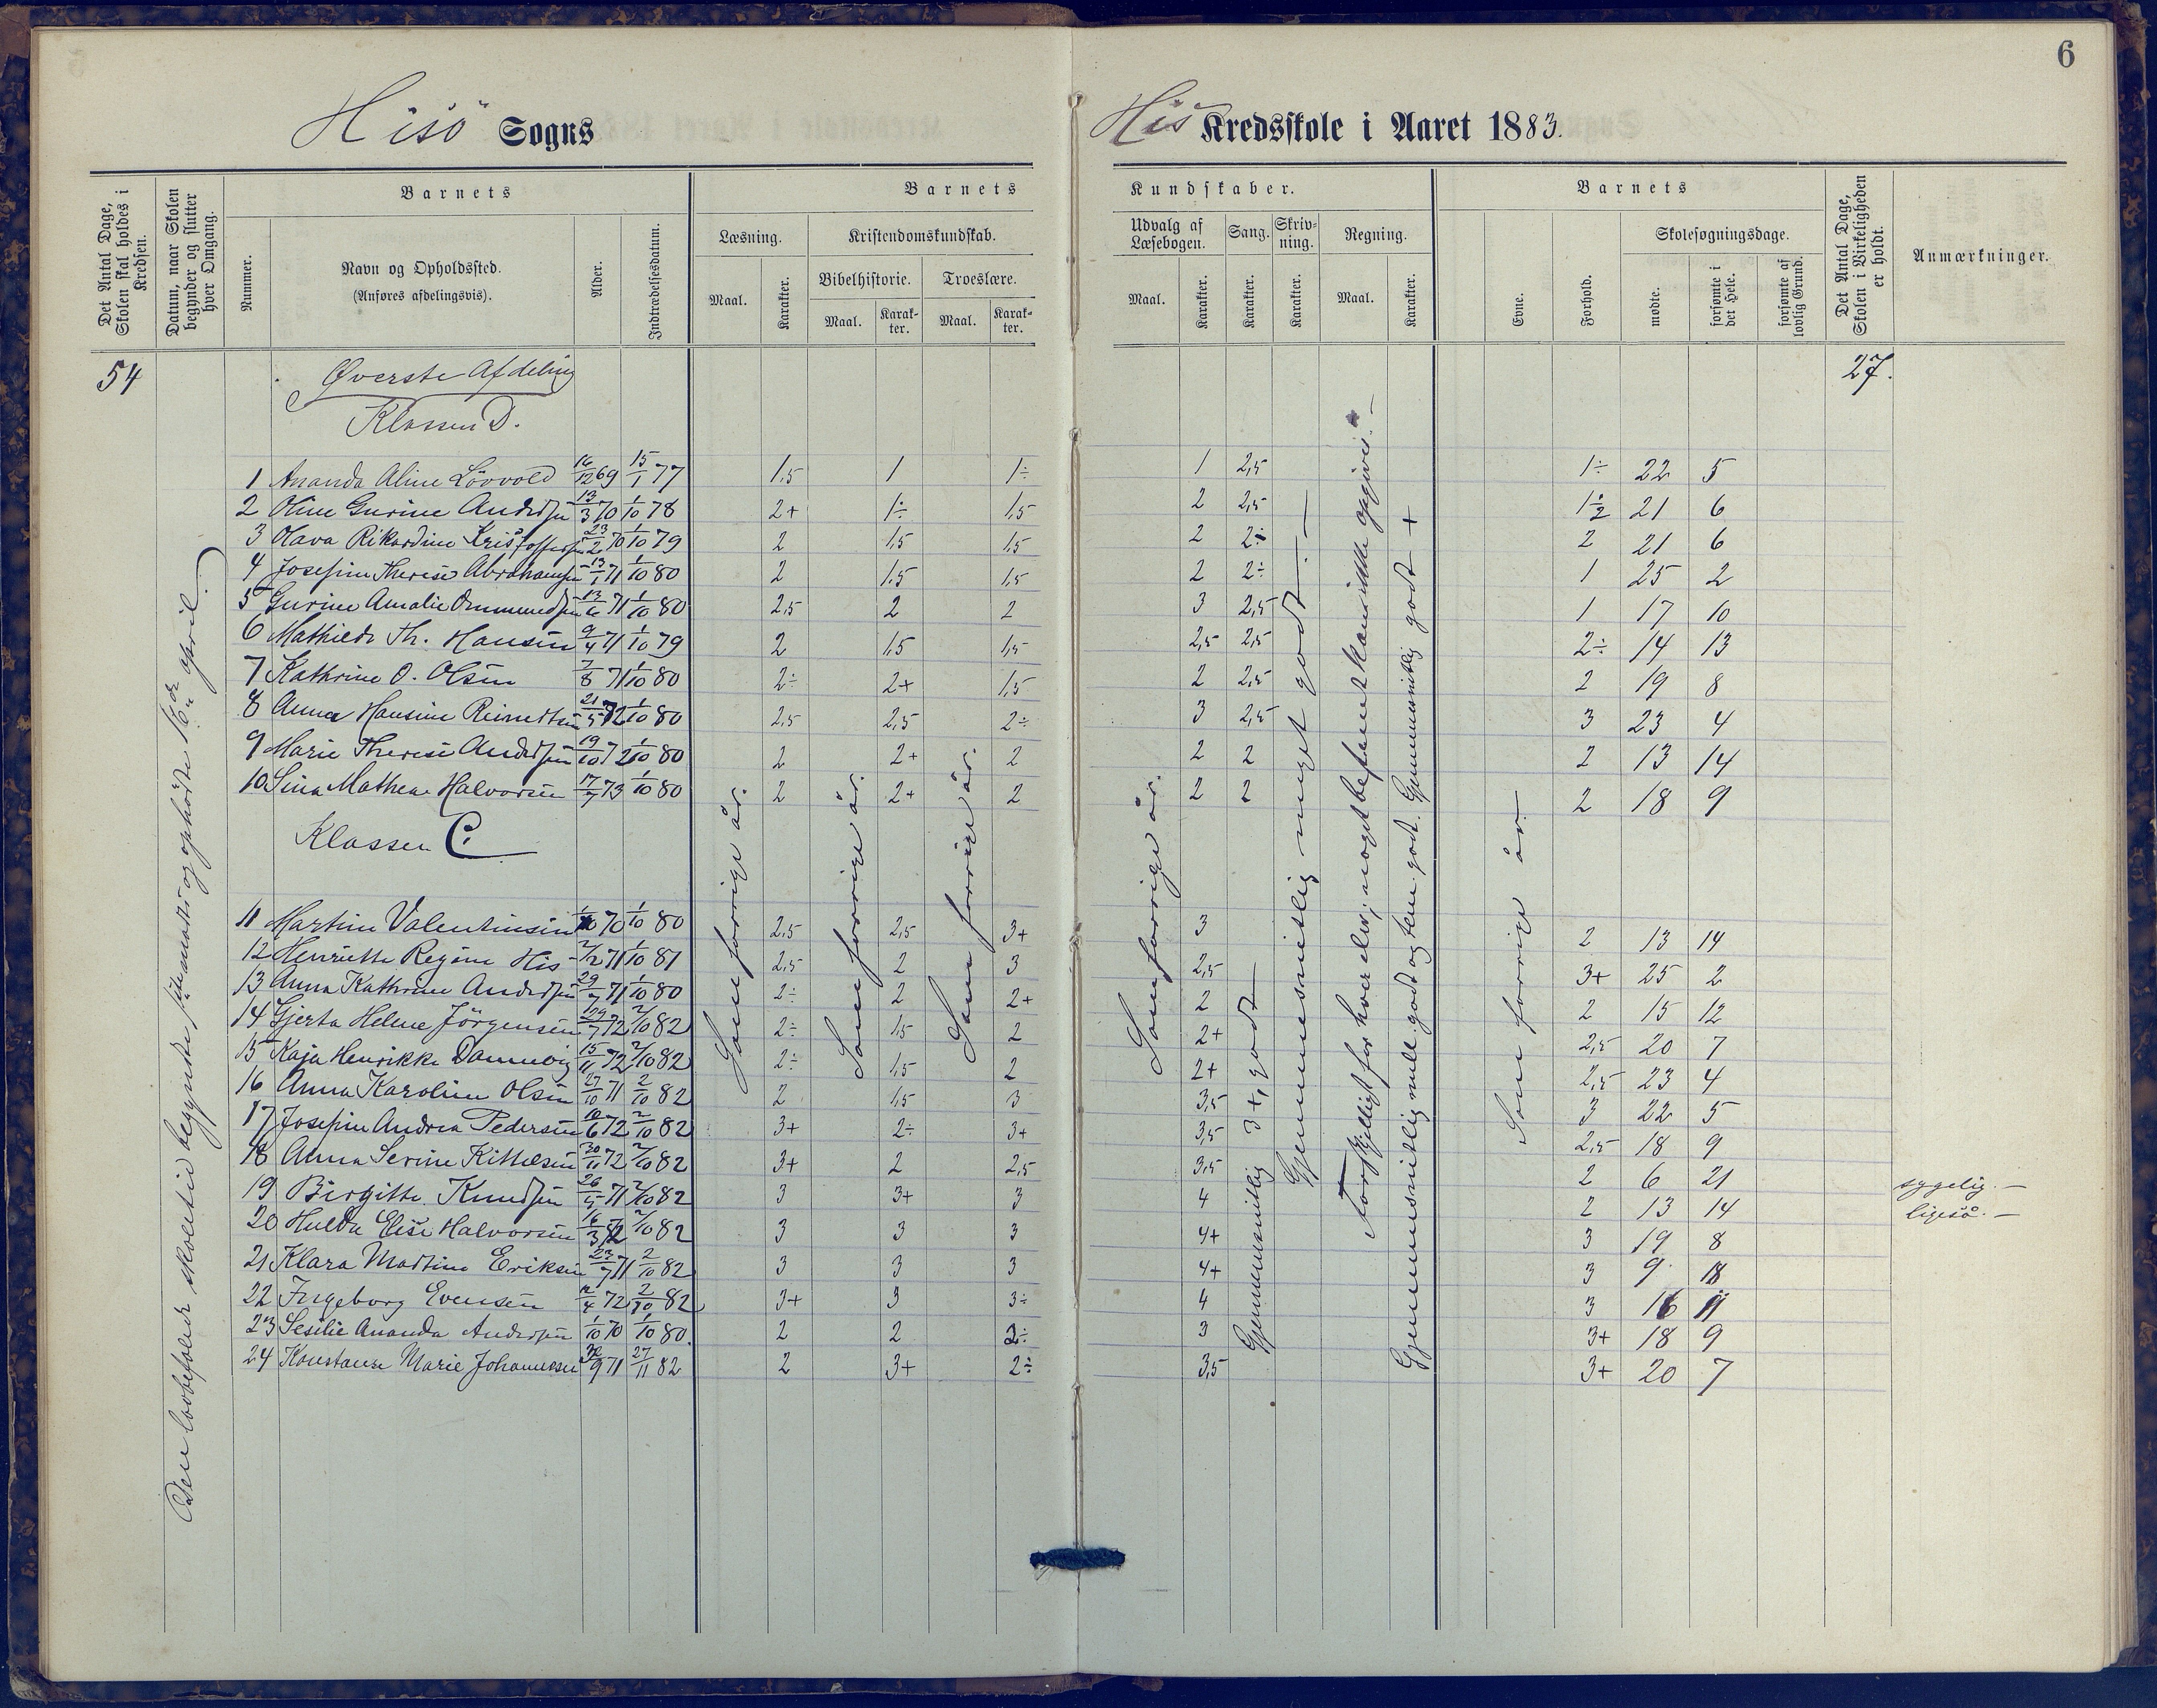 6
Hisö Sogns
His Kredsskole i Aaret 1883.
Det Antal Dage, Skolen skal holdes i Kredsen.
Datum, naar Skolen begynder og slutter hver Omgang.
Barnets
Nummer.
Navn og Opholdssted.
(Anføres afdelingsvis).
Alder.
Indtrædelsesdatum.
Barnets
Læsning.
Maal.
Karakter.
Kristendomskundskab.
Bibelhistorie.
Maal.
Karakter.
Troeslære.
Maal.
Karakter.
Kundskaber.
Udvalg af Læsebogen.
Maal.
Karakter.
Sang.
Karakter.
Skrivning.
Karakter.
Regning.
Maal.
Karakter.
Barnets
Evne.
Forhold.
Skolesøgningsdage.
mødte.
forsømte i det Hele.
forsømte af lovlig Grund.
Det Antal Dage, Skolen i Virkeligheden er holdt.
Anmærkninger.
54 Øverste Afdeling 27.
Klassen D.
1 Ananda Aline Lövvold 16/12 69 15/1 77 1,5 1 1÷ 1 2,5 1÷ 22 5
2 Oline Gurine Andersen 13/3 70 1/10 78 2+ 1÷ 1,5 2 2,5 21 6
3 Hava Rikardine Kristoffersen 23/2 70 1/10 79 2 1,5 1,5 2 2÷ 2 21 6
4 Josefine Therese Abrahamsen 13/1 71 1/10 80 2 1,5 1,5 2 2÷ 1 25 2
5 Gurine Amalie Ommundsen 13/6 71 1/10 80 2,5 2 2 3 2,5 1 17 10
6 Mathilde Th. Hansen 9/4 71 1/10 79 2 1,5 1,5 2,5 2,5 2÷ 14 13
7 Kathrine O. Olsen 7/8 71 1/10 80 2÷ 2+ 1,5 2 2,5 2 19 8
8 Anna Hansine Reinertsen 21/5 72 1/10 80 2,5 2,5 2÷ 3 2,5 3 23 4
9 Marie Therese Andersen 19/10 72 1/10 80 2 2+ 2 2 2 2 13 14
10 Sina Mathea Halvorsen 17/7 73 1/10 80 2 2+ 2 2 2 2 18 9
Klassen C.
11 Martine Valentinsen 70 1/10 80 2,5 2,5 3+ 3 2 13 14
12 Henriette Regine His 2/2 71 1/10 81 2,5 2 3 2,5 3+ 25 2
13 Anna Kathrine Andersen 29/7 71 1/10 80 2÷ 2 2+ 2 2 15 12
14 Gjerta Helene Jörgensen 29/7 72 2/10 82 2÷ 1,5 2 2+ 2,5 20 7
15 Kaja Henrikke Dannevig 15/11 72 2/10 82 2÷ 1,5 2 2+ 2,5 23 4
16 Anna Karoline Olsen 27/10 71 2/10 82 2 1,5 3 3,5 3 22 5
17 Josefine Andrea Pedersen 10/6 72 2/10 82 3+ 2÷ 3+ 3,5 2,5 18 9
18 Anna Serine Kittelsen 30/11 72 2/10 82 3+ 2 2,5 3,5 2 6 21 sygelig. —
19 Birgitte Knudsen 26/5 71 2/10 82 3 3+ 3 4 2 13 14 ligeså. —
20 Hulda Elise Halvorsen 16/3 72 2/10 82 3 3 3 4+ 3 19 8
21 Klara Martine Eriksen 23/7 71 2/10 82 3 3 3 4+ 3 9 18
22 Ingeborg Evensen 72 2/10 82 3+ 3 3÷ 4 3 16 11
23 Sesilie Ananda Andersen 1/10 70 1/10 80. 2 2 2÷ 3 3+ 18 9
24 Konstanse Marie Johannessen 71 27/11 82 2 3+ 2÷ 3,5 3+ 20 7
Den lovbefalede skoletid begyndte 1ste marts og ophörte 16de april.
Som forrige år.
Som forrige år.
Som forrige år.
Som forrige år.
Gjennemsnitlig 3+, godt —
Gjennemsnitlig meget godt ÷ —
Forskjelligt for hver elev; noget bestemt kan ikke opgives. —
Gjennemsnitlig mell. godt og tem. godt. Gjennemsnitlig godt +
Som forrige år —